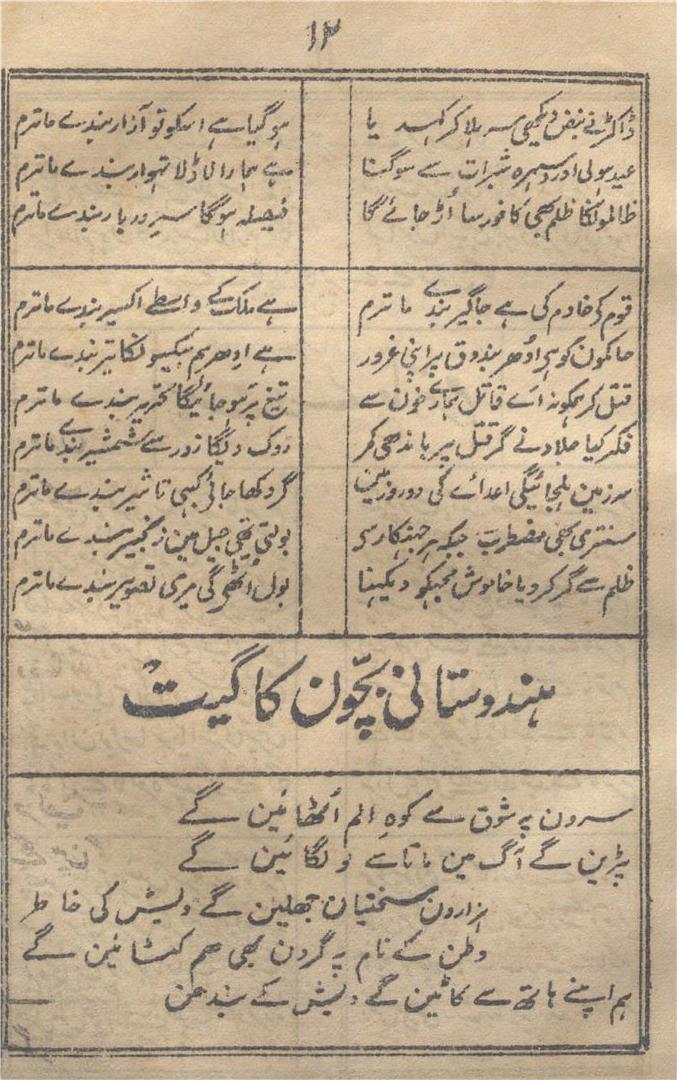 ۱۲
ڈاکٹر نے نبض دیکھی سر ہلا کر کہدیا ہو گیا ہے اسکو تو آزار بندے ماترم
عید ہولی اور دسہرہ شبرات سے سوگنا ہے ہمارا لاڈلا تہوار بندے ماترم
ظالمونکا ظلم بھی کافور سا اُڑ جائے گا فیصلہ ہوگا سرِ دربار بندے ماترم
قوم کی خادم کی ہے جاگیر بندے ماترم ہے ملک کے واسطے اکسیر بندے ماترم
حاکمون کو ہے اُودھر بندوق پر اپنی غرور ہے ادھر ہم بیکسونکا تیر بندے ماترم
قتل کر ہمکو نہ اے قاتل ہمارے خون سے تیغ پر ہو جائیگا تحریر بندے ماترم
فکر کیا جلاد نے گر قتل پر باندھی کمر روک دیگا زور سے شمشیر بندے ماترم
سرزمین ہلجائیگی اعدائے کی دو روز مین گر دکھا جائی کبہی تاثیر بندے ماترم
سنتری بھی مضطرب جبکہ ہر جہنکار سے بولتی تھی جیل مین زنجیر بندے ماترم
ظلم سے گر کردیا خاموش مجہکو دیکہنا بول اُٹھے گی میری تصویر بندے ماترم
ہندوستانی بچّون کا گیت
سرون پہ شوق سے کوہِ الم اُٹھائین گے
پڑین گے آگ مین ماتا سے لگائین گے
ہزارون سختیان جھلین گے دیش کی خاطر
وطن کے نام پہ گردن بھی ہم کٹائین گے
ہم اپنے ہاتھ سے کاٹین گے دیش کے بندھن